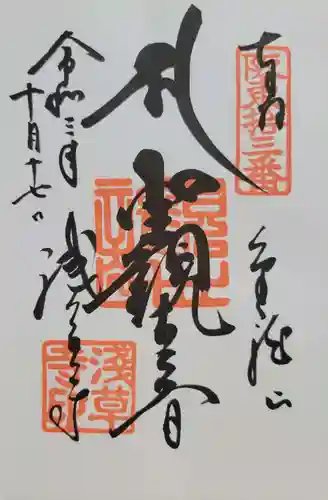 奉拝
坂東拾三番
金龍山
聖観世音
浅草寺
浅草寺印
令和三年
十月十七日